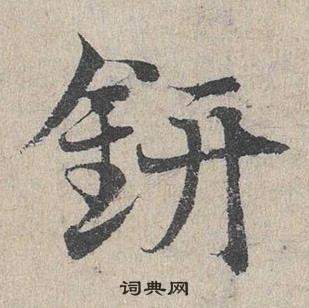 鈃
词典网